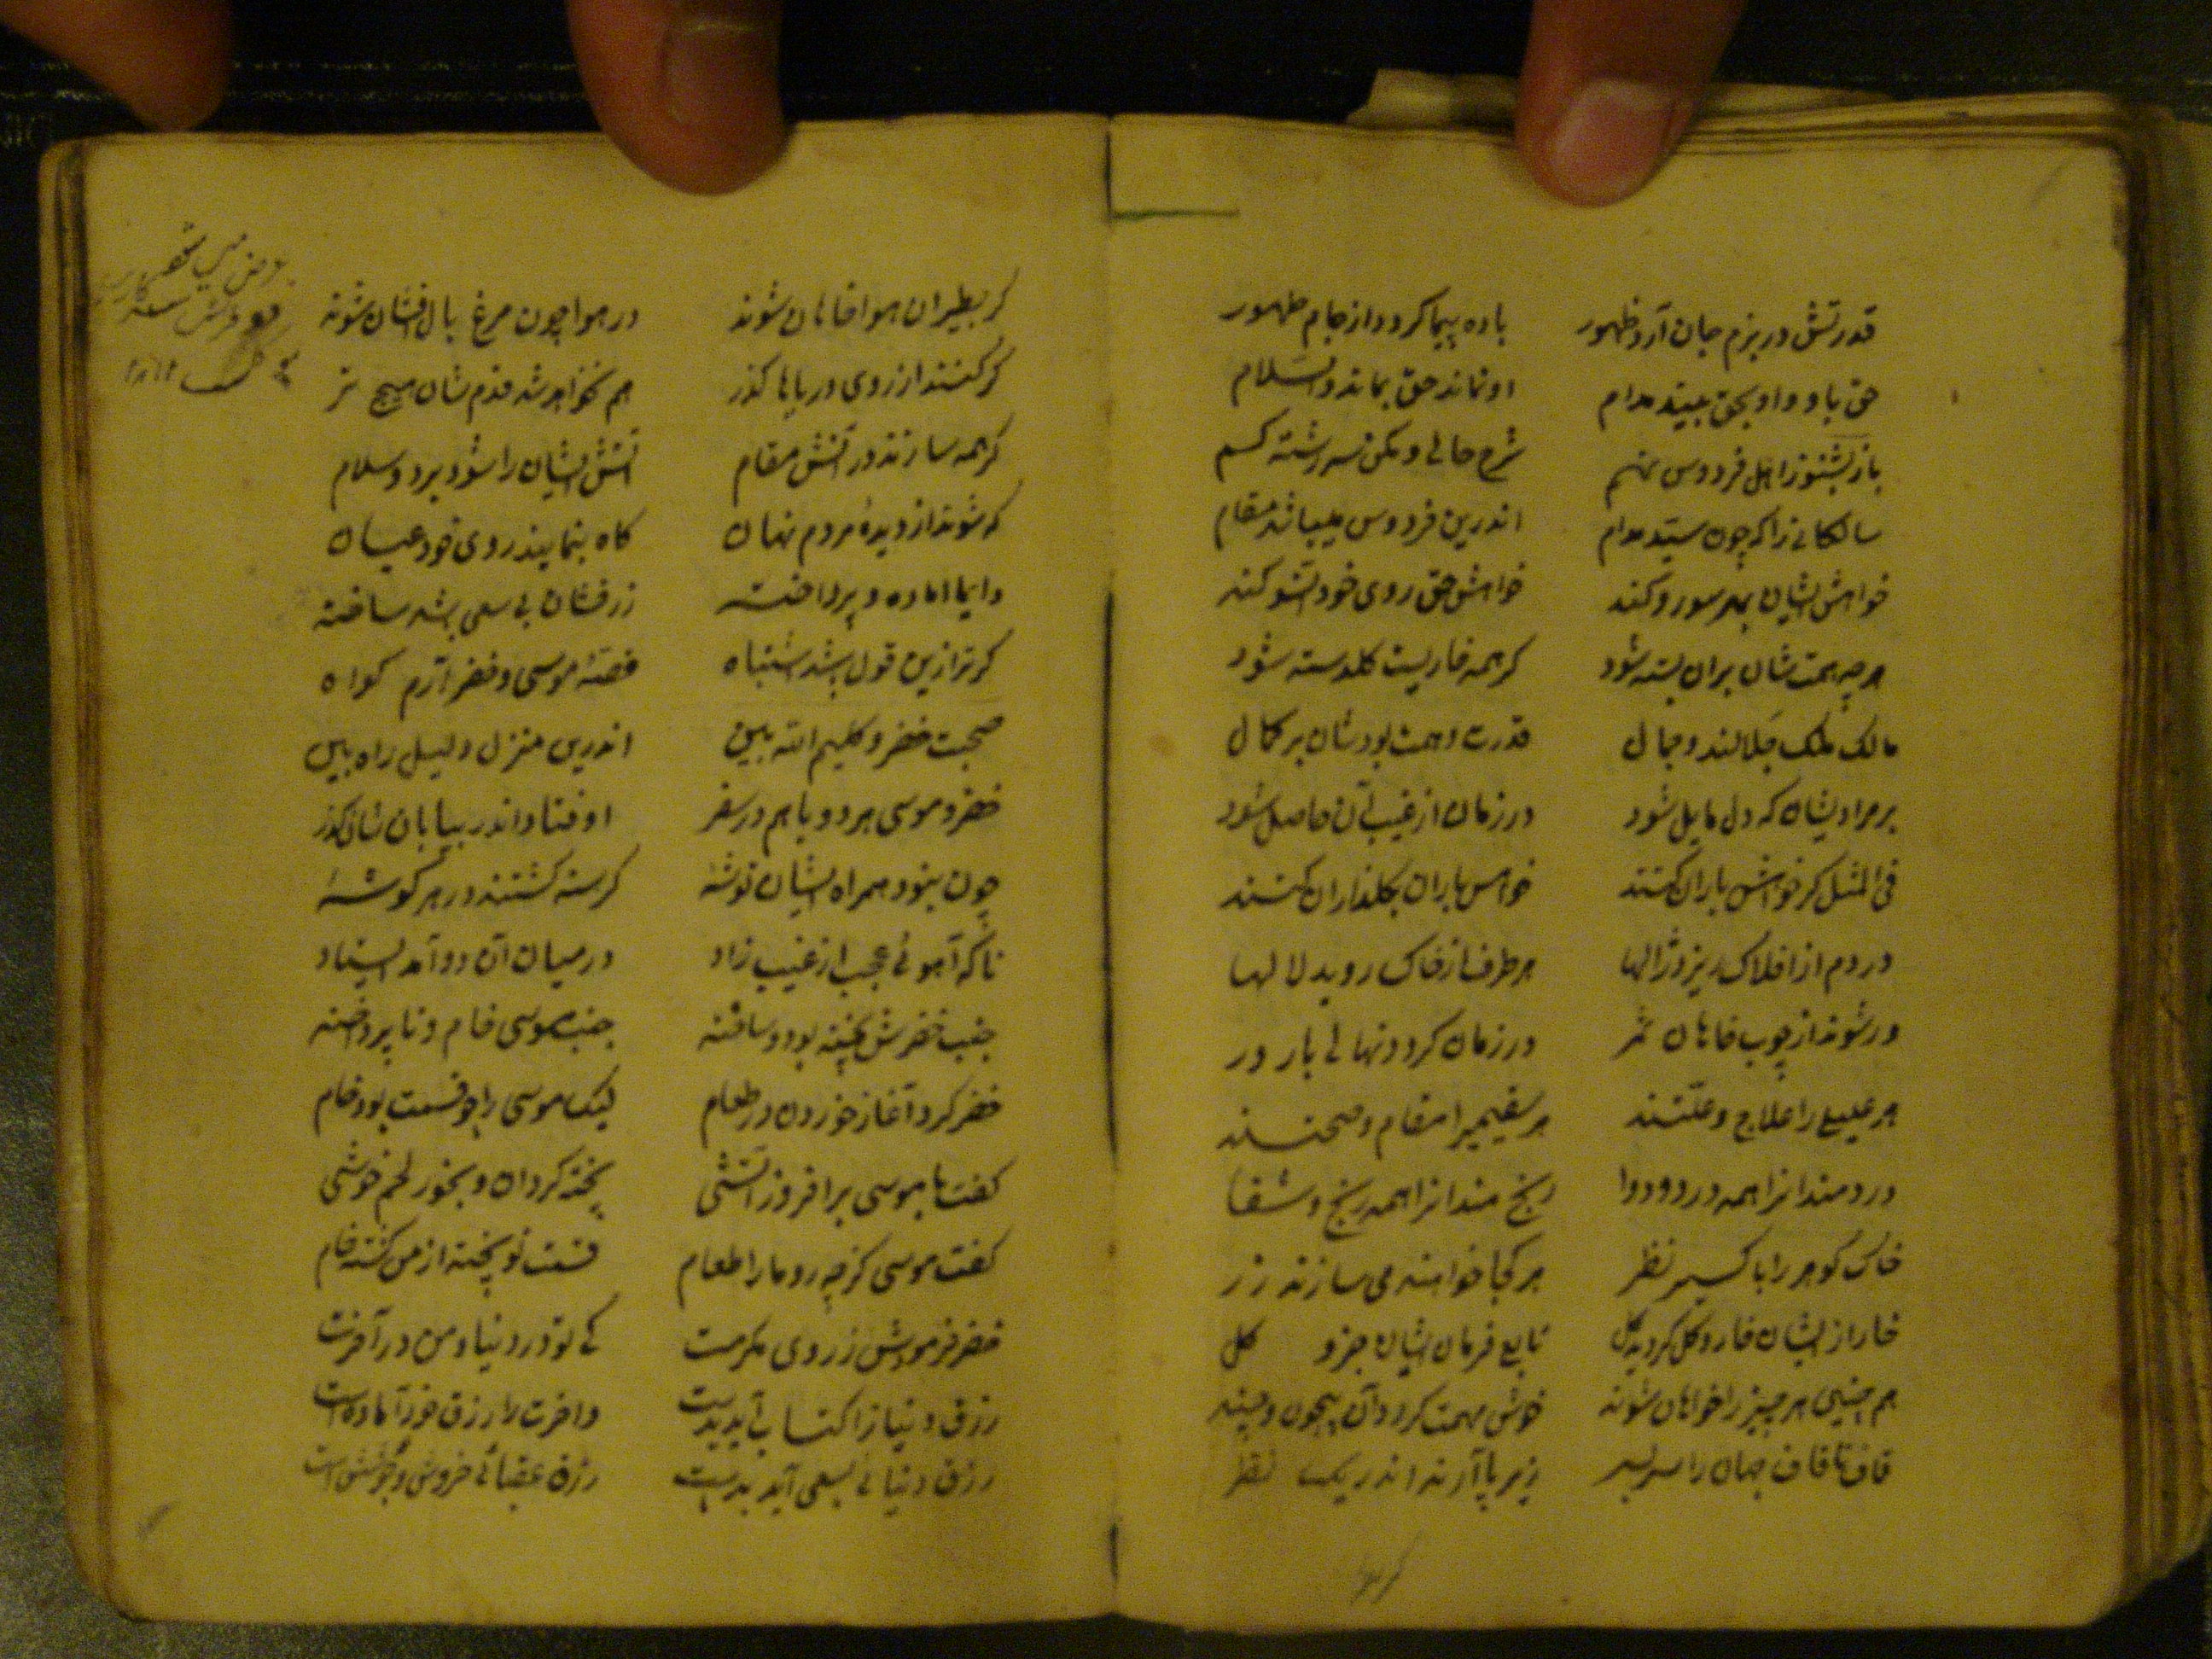 قدرتش در بزم جان آرد ظهور باده پیما کردد از جام طهور
حق باو و او بحق بیند مدام او نماند حق بماند والسلام
باز بشنو ز اهل فردوس نهم شرح حالی و مکن سررشته کم
سالکانی را که چون سید مدام اندرین فردوس میباشد مقام
خواهش ایشان بهر سو رو کند خواهش حق روی خود آنسو کند
هر چه همت شان بران بسته شود کر همه خاریست کلدسته شود
مالک ملک جلالند و جمال قدرت و همت بود شان بر کمال
بر مرادیشان که دل مایل شود در زمان از غیب آن حاصل شود
فی المثل کر خواهش باران کنند خواهس باران بکلذاران کنند
در دم از افلاک ریزد ژالها هر طرف از خاک روید لالها
ور شوند از چوب خاهان ثمر در زمان کردد نهالی بار ور
هر علیلی را علاج و علتند هر سقیمیرا مقام و صحتند
دردمندانرا همه درد و دوا رنج مندانرا همه رنج و شفا
خاک کوهر را باکسیر نظر هر کجا خواهند می سازند زر
خار از ایشان خار و کل کردید کل تابع فرمان ایشان جزو کل
هم چنین هر چیز را خواهان شوند خوش مهمت کردد آن بیچون و چند
قاف تا قاف جهان را سر بسر زیر پا آرند اندر یک نظر
کر بطیر
کر بطیران هوا خاهان شوند در هوا چون مرغ بال افشان شوند
کر کنند از روی دریاها کذر هم نخواهد شد قدم شان هیچ تر
کر همه سازند در آتش مقام آتش ایشان را شود برد و سلام
که شوند از دیدهٔ مردم نهان کاه بنمایند روی خود عیان
دایما اماده و پرداخته رزقشان بی سعی باشد ساخته
کر ترا زین قول باشد اشتباه قصهٔ موسی و خضر آرم کواه
صحبت خضر و کلیم الله ببین اندرین منزل دلیل راه ببین
خضر و موسی هر دو با هم در سفر اوفتاد اندر بیابان شان کذر
چون نبود همراه ایشان توشهٔ کرسنه کشتند در هر کوشهٔ
ناکه آهوئی عجب از غیب زاد در میان آن دو آمد ایستاد
جنب خضرش پخته بود و ساخته جنب موسی خام و ناپرداخته
خضر کرد آغاز خوردن در طعام لیک موسی را چو قسمت بود خام
کفت با موسی برافروز آتشی پخته کردان و بخور لحم خوشی
کفت موسی کز چه رو ما را طعام قسمت تو پخته از من کشته خام
خضر فرمودش ز روی مکرمت کی تو در دنیا و من در آخرت
رزق دنیا ز اکتسابی آید بدست و اخرت را رزق خود آماده است
رزق دنیائی بسعی آید بدست رزق عقبائی خروش و جوشش است